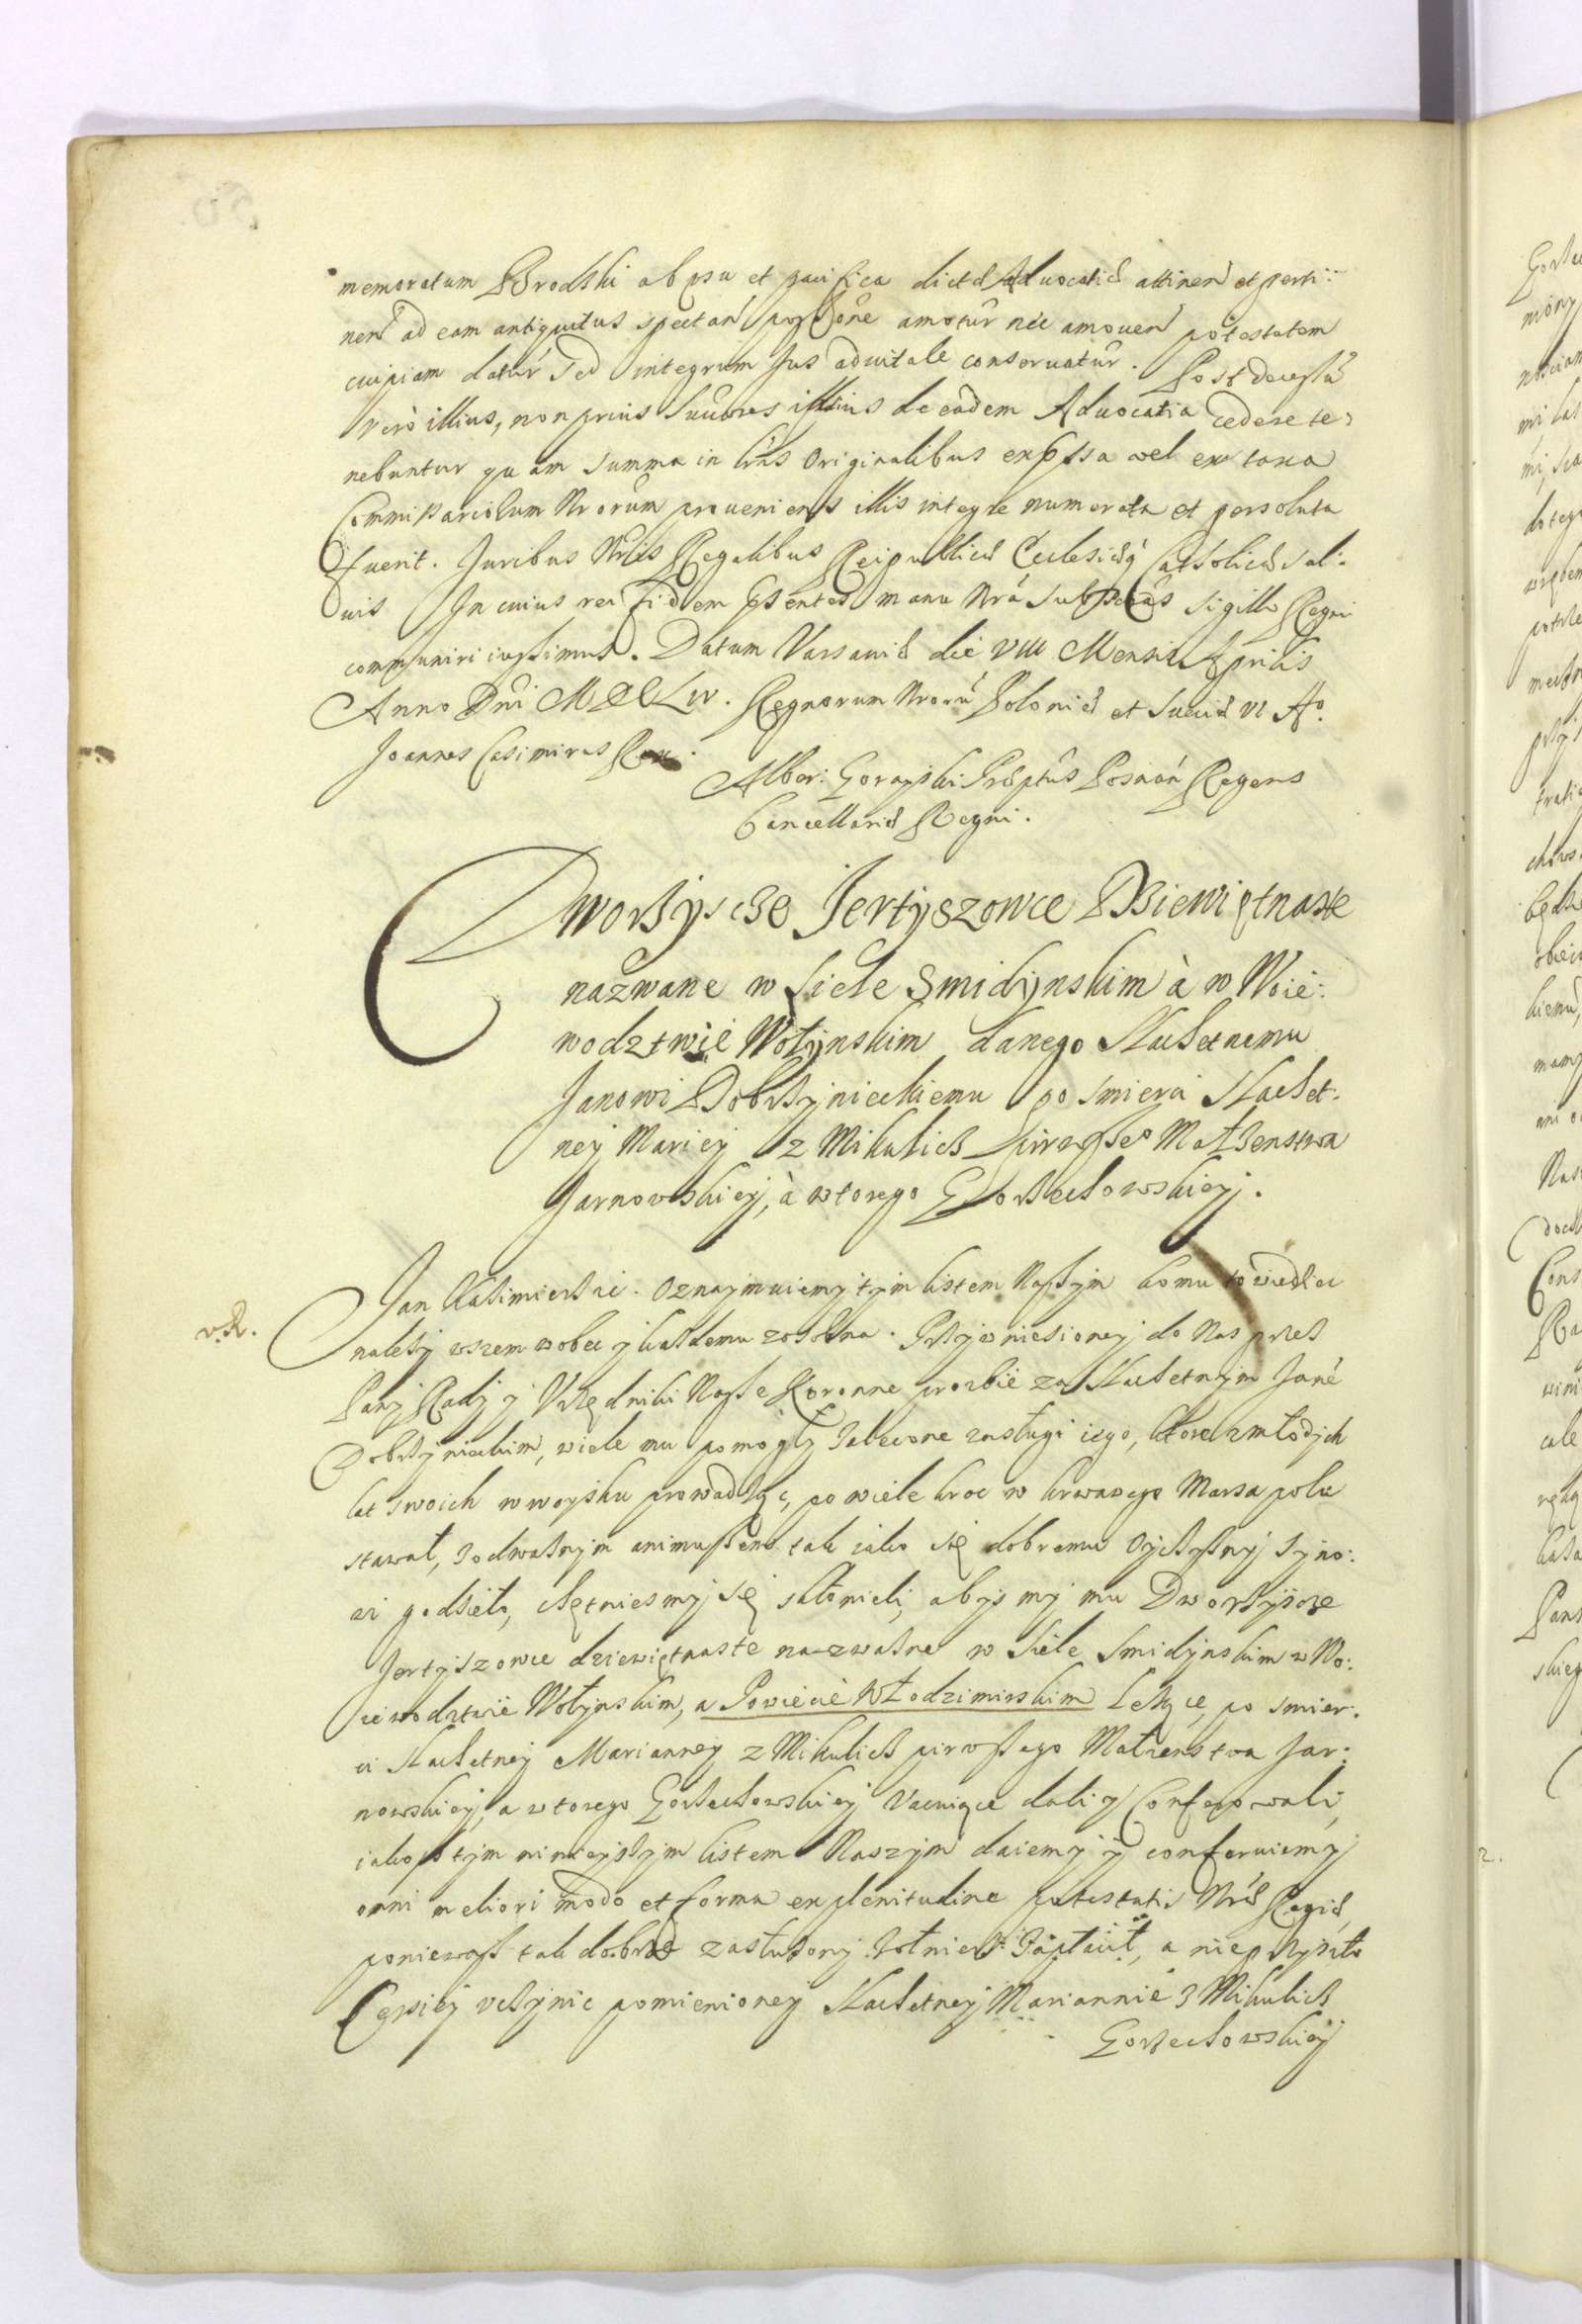 memoratum Brodski ab usu et pacifica dictæ Aduocatiæ attinen et perti:
nen ad eam antiquitus spectan possone amotur nec amouen potestatem
cuipiam datur sed integrum Jus aduitale conseruatur. Post decessu
vero illius, non prius Succores illius de eadem Aduocatia cedere te:
nebuntur quam summa in lris Originalibus expssa vel ex taxa
Commissariorum Nrorum proueniens illis integre numerata et persoluta
fuerit. Juribus Nris Regalibus Reipublicæ Ecclesiæq Catholicæ sal:
uis In cuius rei fidem psentes manu Nra subscras sigillo Regni
communiri iussimus. Datum Varsauiæ die VIII Mensis Aprilis
Anno Dni MDCLIV. Regnorum Nroru Poloniæ et Sueciæ VI Ao.
Joannes Casimirus Rex.
Alber: Gorayski Præptus Posnan Regens
Cancellariæ Regni.
Dworzyscze Jertyszowce Dziewiętnaste
nazwane w Siele Smidynskim à w Woie:
wodztwie Wołynskim danego Szlachetnemu
Janowi Dobrzynieckiemu po smierci Szlachet:
ney Mariey z Mikulicz pirwszeo Małzenstwa
Jarnowskiey, à wtorego Gorzechowskieyj.
v. R.
Jan Kazimierz etc. Oznaymuiemy tym listem Naszym komu to wiedziec
nalezy wszem wobec y kazdemu zosobna. Przywniesioney do Nas przez
Pany Rady y Vrzędniki Nasze Koronne prozbie za Szlachetnym Jane
Dobrzynieckim, wiele mu pomogły zalecone zasługi iego, ktore z młodych
lat swoich w woysku prowadząc, po wiele kroc w krwawego Marsa polu
stawał, y odwaznym animuszem tak iako się dobremu Oyczyzny Syno:
wi godzieło, chętniesmy się skłonieli, abysmy mu Dworzyscze
Jertyszowce dziewiętnaste nazwane w Siele Smidynskim w Wo:
iewodztwie Wołynskim, a Powiecie Włodzimirskim lezące, po smier:
ci Szlachetney Marianney z Mikulicz pirwszego Małzenstwa Jar:
nowskiey, a wtorego Gorzechowskiey Vacuiące dali y Conferowali,
iakosz tym ninieyszym listem Naszym daiemy y conferuiemy
omni meliori modo et forma ex plenitudine potestatis Nræ Regiæ,
poniewasz tak dobrze zasłuzony zołnierz zapłaeił, a nieprzyszło
Cessiey vczynic pomienioney Szlachetney Mariannie z Mikulicz
Gorzechowskiey